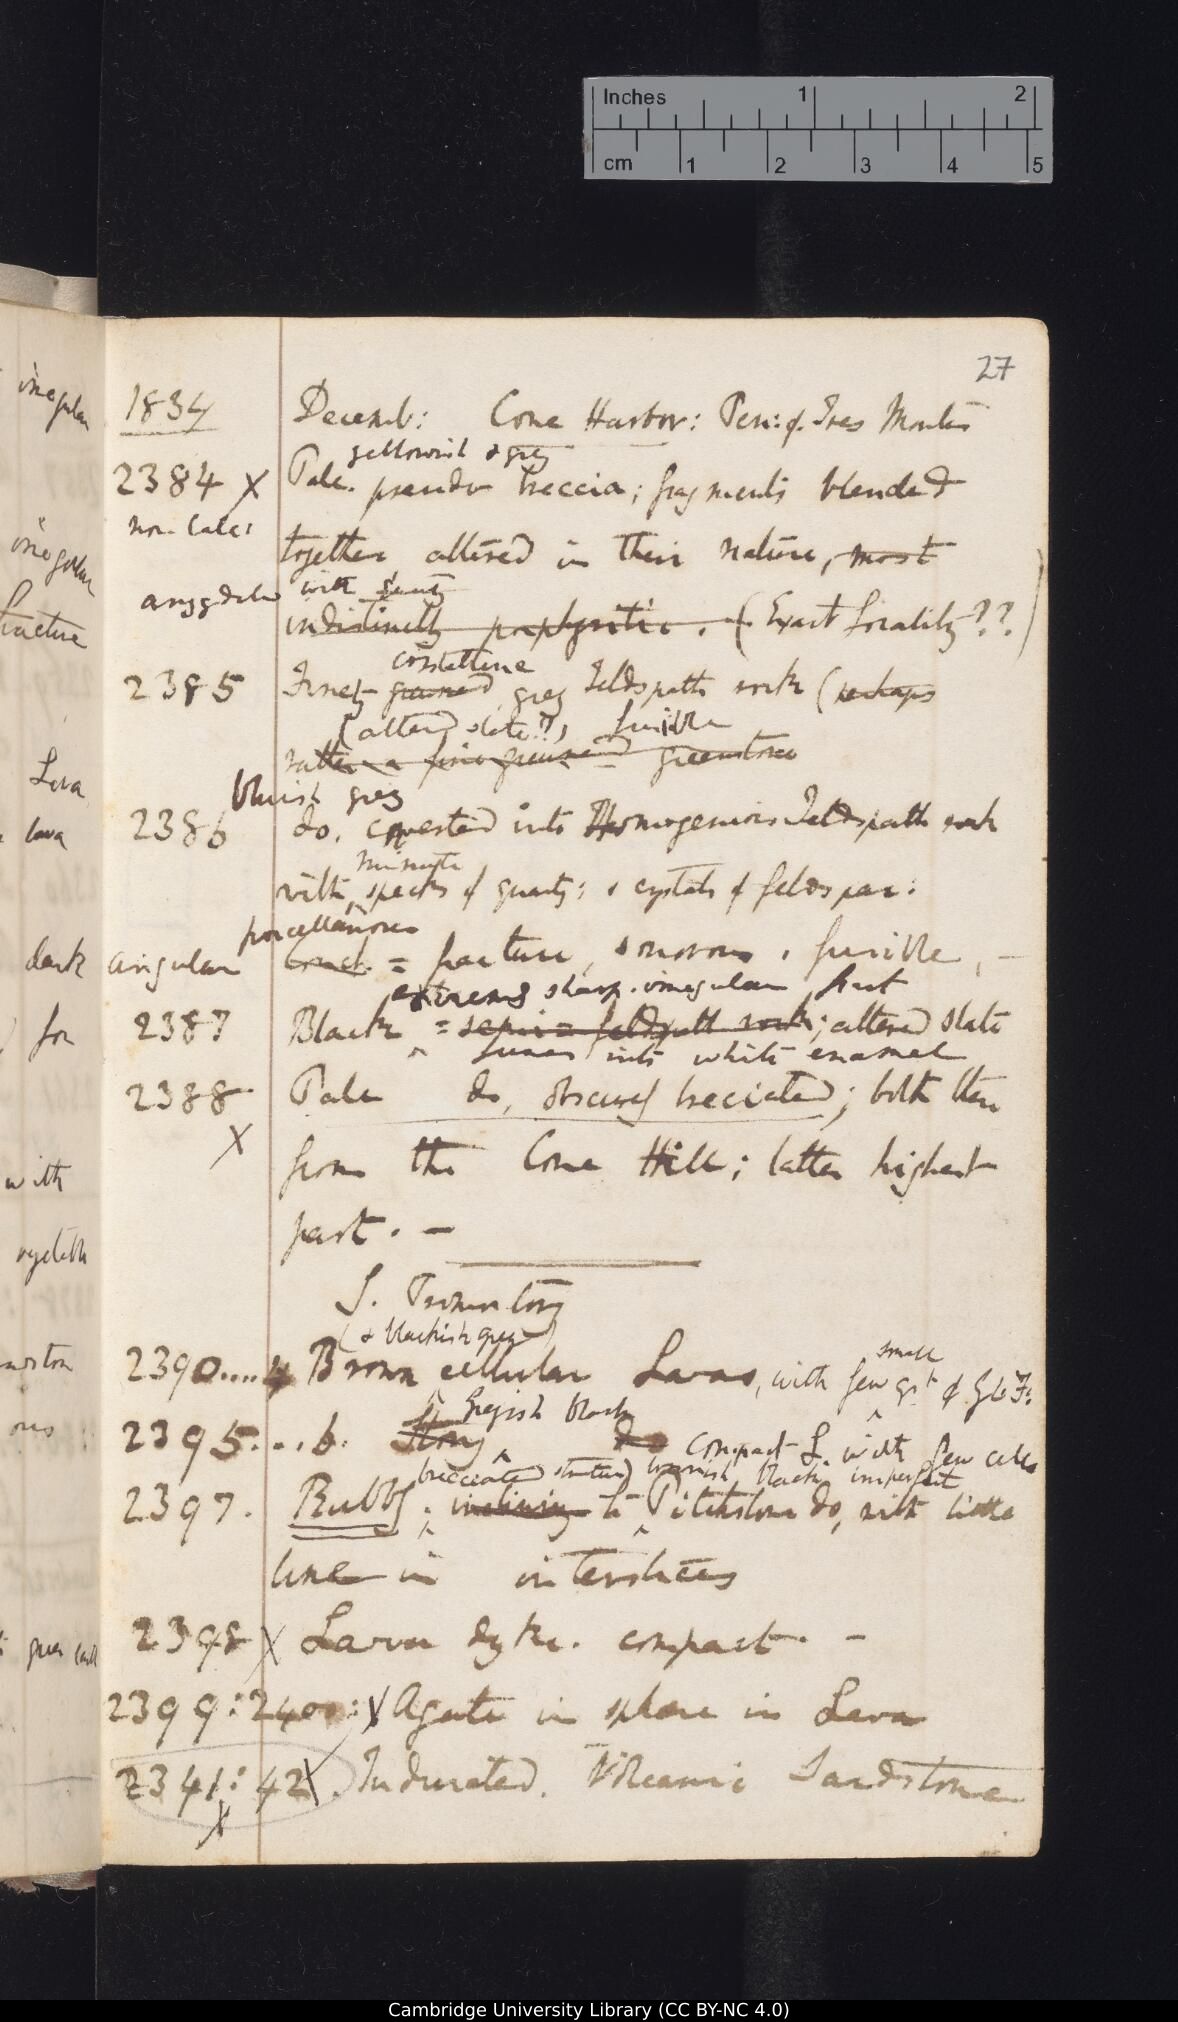 Inches 1 2
cm 1 2 3 4 5
27
irregular
irregular
fracture
Lava
lava
dark
for
with
1834 Decemb: Cone Harbor: Pen: of Tres Montes
yellowish & grey
2384 X Pale. pseudo breccia; fragments blended
non. Calc:
together, altered in their nature, most
amygdal with quartz
indistinctly porphyritic. (Exact locality??)
crystalline
2385 Finely grained grey Feldspath rock (perhaps
(altered slate??) fusible
rather a fine grained greenstone
bluish grey
2386 do. converted into Homogenious Feldspath rock
minute
with specks of quartz: & crystals of feldspar:
porcellanous
angular Conch. = fracture, sonorous, fusible, —
extremely sharp. irregular fract
2387 Black = semi = feldspath rock; altered slate
fuses into white enamel
2388 Pale do, obscurely brecciated; both these
X
from the Cone Hill; latter highest
part. —
S. Promontory
(& blackish grey)
2390....4 Brown cellular Lavas, with few small of
greyish black
2395...6: Stony do compact L. with few cells
brecciated structure brownish black imperfect
2397. Rubbly; inclining to Pitchstone do, with little
lime in interstices
2398 X Lava dyke. compact. —
2399:2400: X Agate in sphere in Lava
2341:42 X. Indurated. Volcanic Sandstone
X
Cambridge University Library (CC BY-NC 4.0)